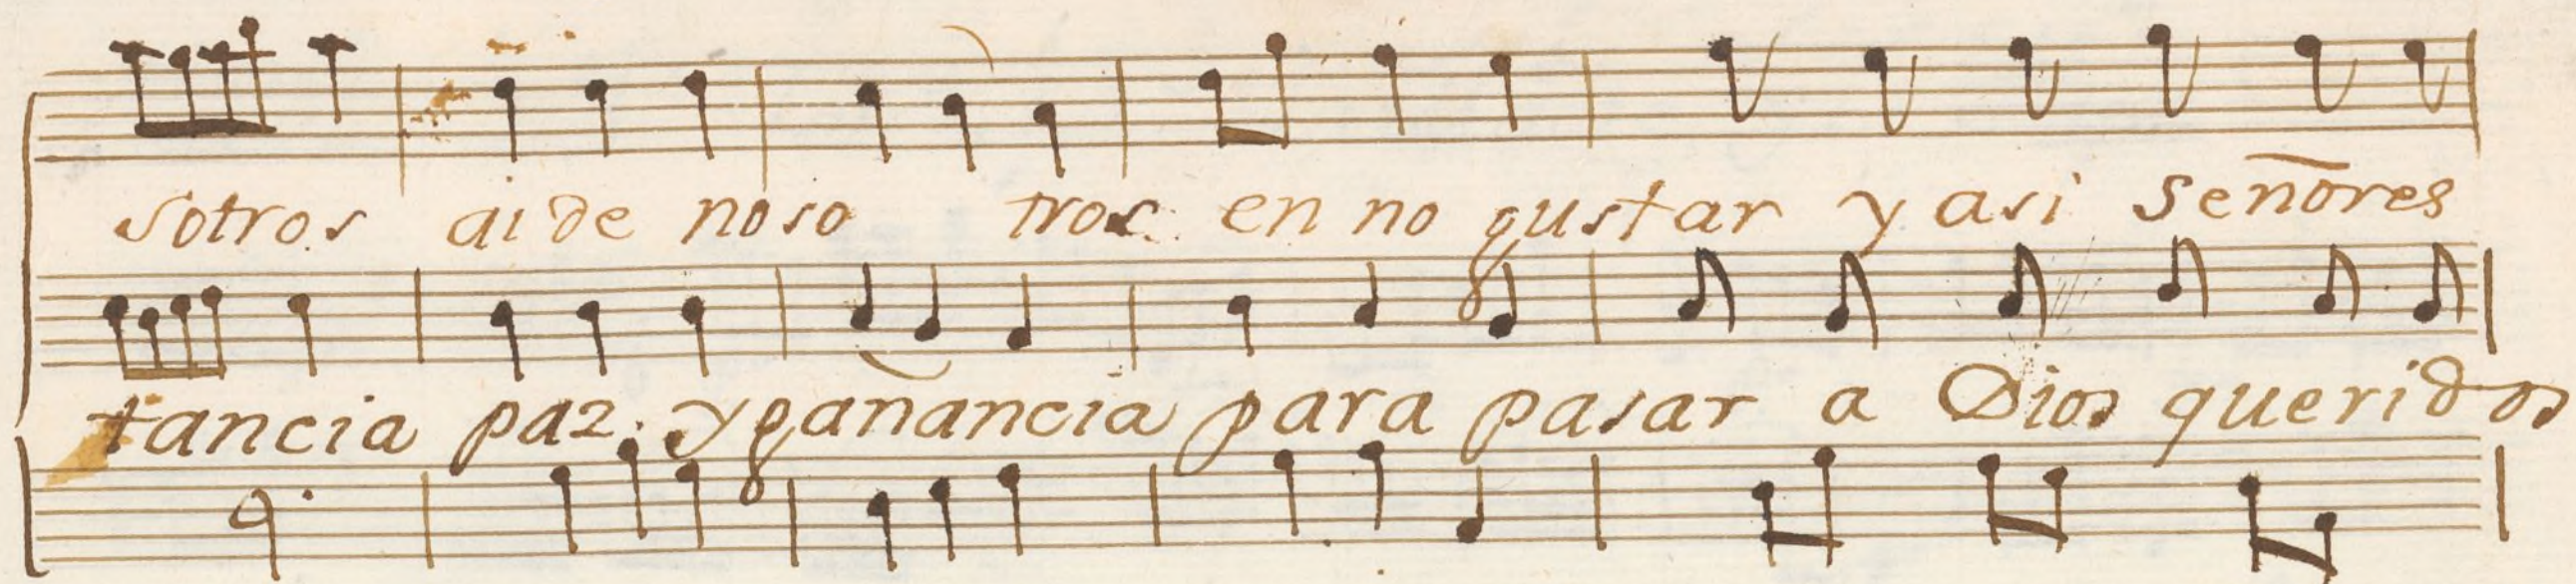 sotros ai de noso tros en no gustar y asi señores
tancia paz. y ganancia para pasar a Dios queridos